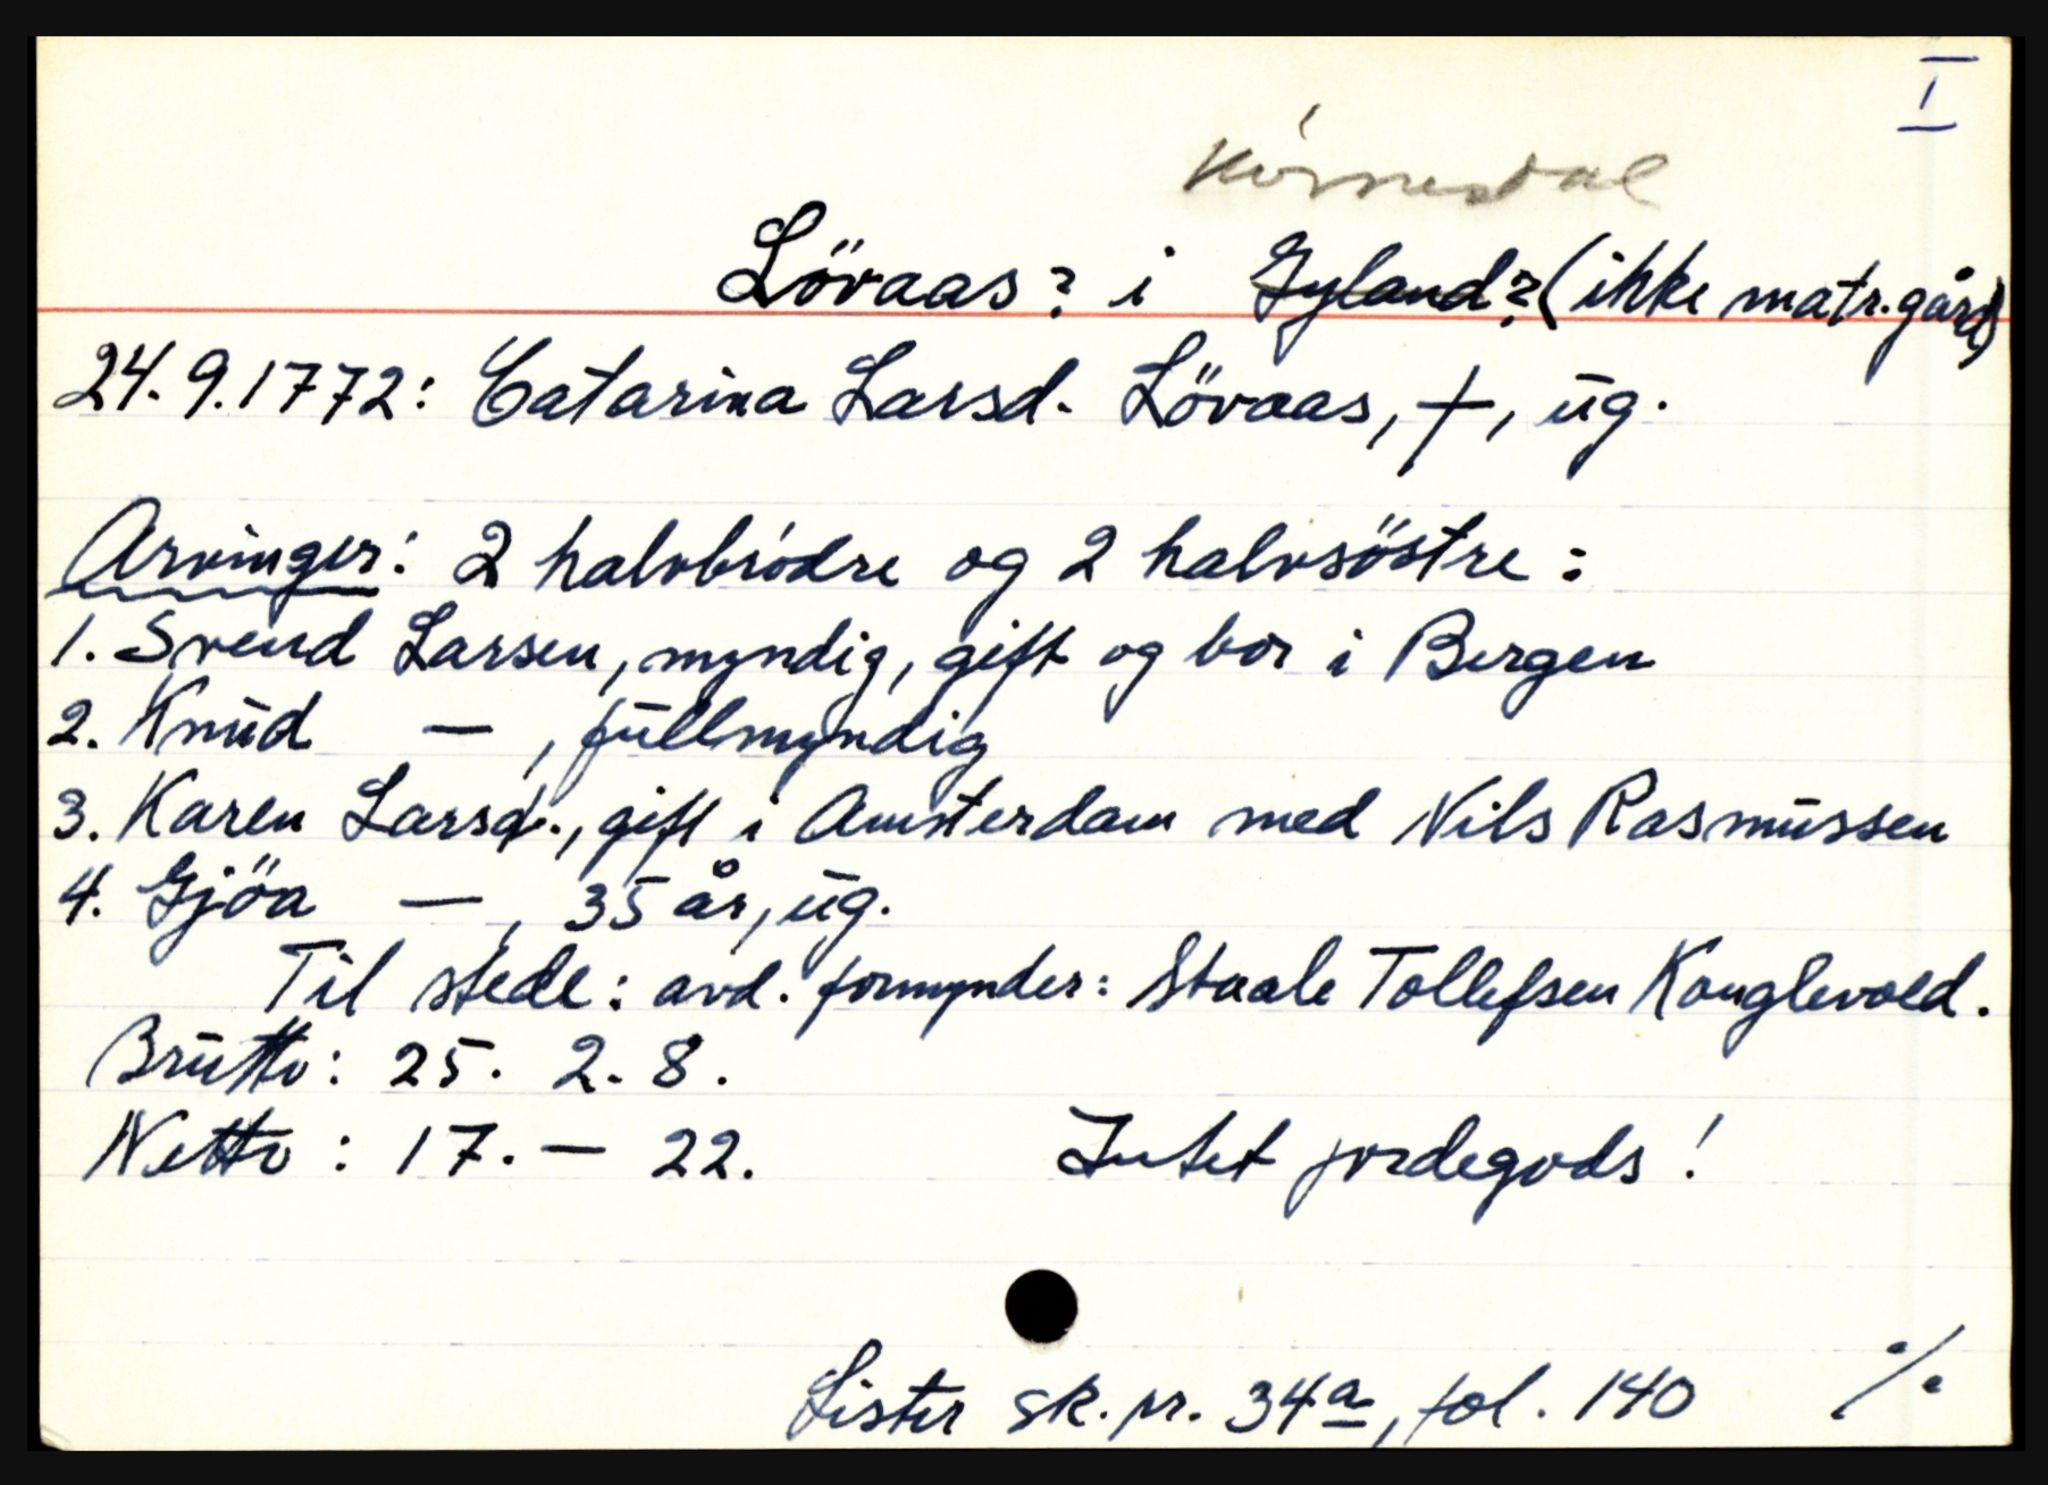 I
Lövaas? i Gyland? (ikke matr.gård)
24.9.1772: Catarina Larsd. Lövaas, †, ug.
Arvinger: 2 halvbrödre og 2 halvsöstre:
1. Svend Larsen, myndig, gift og bor i Bergen
2. Knud — , fullmyndig
3. Karen Larsd., gift i Amsterdam med Nils Rasmussen
4. Gjöa — , 35 år, ug.
Til stede: avd. formynder: Staale Tollefsen Konglevold.
Brutto: 25. 2. 8.
Netto: 17. — 22. Intet jordegods!
Lister sk. pr. 34a, fol. 140 ./.